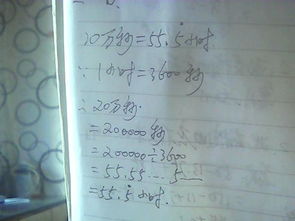 20万秒=55.5小时
∵1小时=3600秒
∴20万秒
=200000秒
=200000÷3600
=55.55…5
=55.5小时.